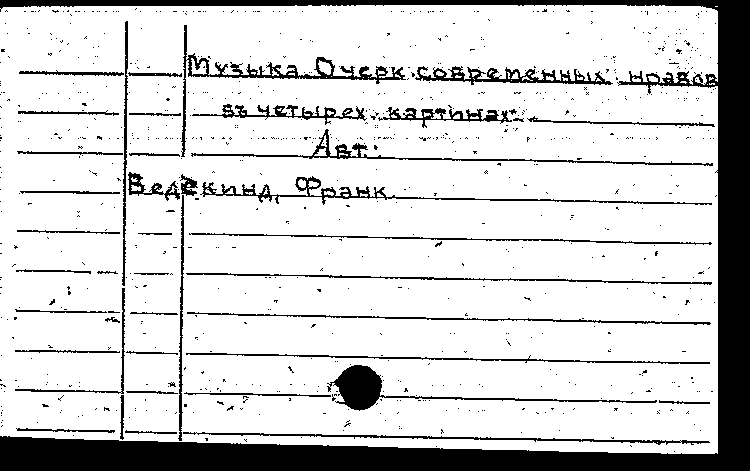 Музыка. Очерк современных нравов
въ четырех картинах.
Авт:
Ведекинд, Франк.